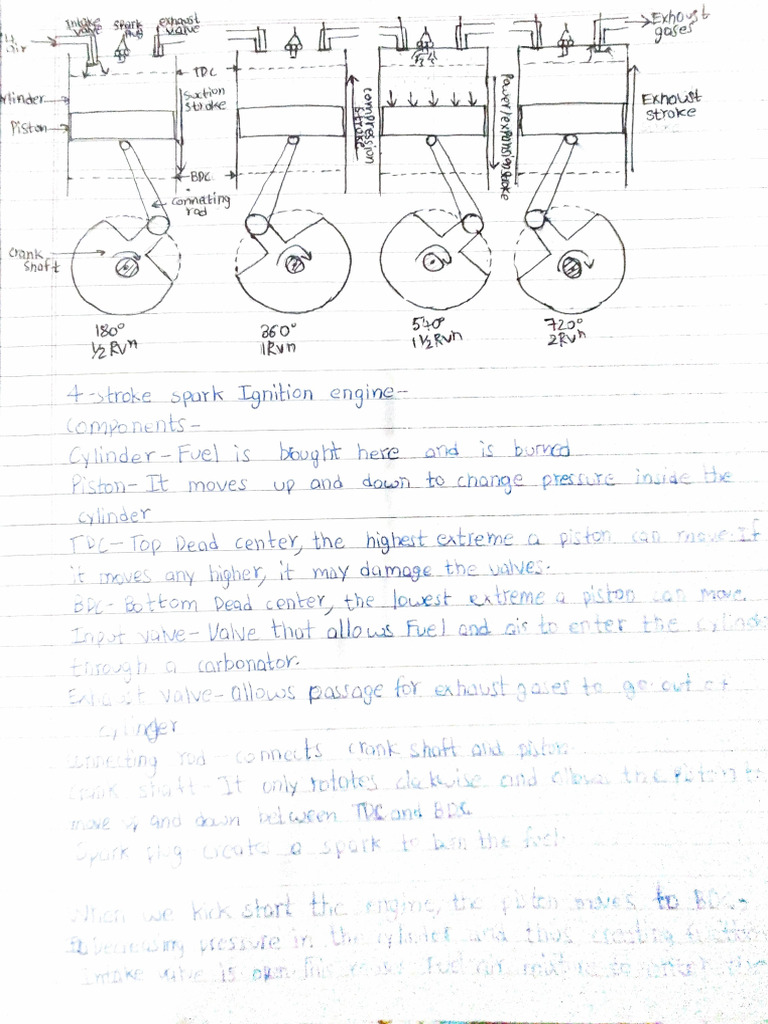 Intake valve
Spark plug
exhaust valve
Air
TDC
Suction stroke
Cylinder
Piston
BDC
Connecting rod
Crank shaft
Compression stroke
Power/expansion stroke
Exhaust gases
Exhaust stroke
180° 360° 540° 720°
1/2 Rvn 1Rvn 1 1/2 Rvn 2Rvn
4-stroke spark Ignition engine-
Components-
Cylinder-Fuel is bought here and is burned
Piston-It moves up and down to change pressure inside the
cylinder
TDC-Top Dead center, the highest extreme a piston can move. If
it moves any higher, it may damage the valves.
BDC-Bottom Dead center, the lowest extreme a piston can move
Input valve-Valve that allows Fuel and air to enter the cylinder
through a carbonator.
Exhaust valve-allows passage for exhaust gases to go out of
cylinder
Connecting rod-connects crank shaft and piston.
Crank shaft-It only rotates clockwise and allows the piston to
move up and down between TDC and BDC
Spark plug creates a spark to burn the fuel.
When we kick start the engine, the piston moves to BDC,
decreasing pressure in the cylinder and thus creating suction
Intake valve is open. This Fuel air mixture to enter the